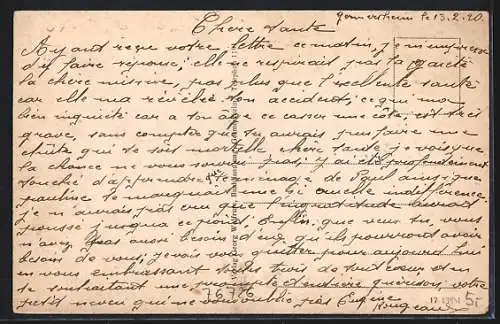 Germersheim le 13.2.20.
Chère tante
Ayant reçu votre lettre ce matin, je m'empresse
d'y faire réponse; elle ne respirait pas la gaieté
la chère missive, pas plus que l'excellente santé
car elle m'a révélée ton accident; ce qui m'a
bien inquiété car a ton âge ce casser une côte, est très
grave, sans compter que tu aurais pu faire une
chûte qui te sois mortelle chère tante je vois que
la chance ne vous souvri pas, j'y ai été profondement
touché d'apprendre l'enménage de que
pauline te manquait une si cruelle indifférence
je n'aurais pas cru que l'ingratitude aurait
poussé jusqu'a ce point, Enfin que veux tu, vous
n'avez pas aussi besoin d'eux qu'ils pourront avoir
besoin de vous, je vais vous quitter pour aujourd'hui
en vous embrassant toutes trois de tout cœur et en
te souhaitant une prompte et entière guérison, votre
petit neveu qui ne vous oublie pas Eugène
76776
17
5.-